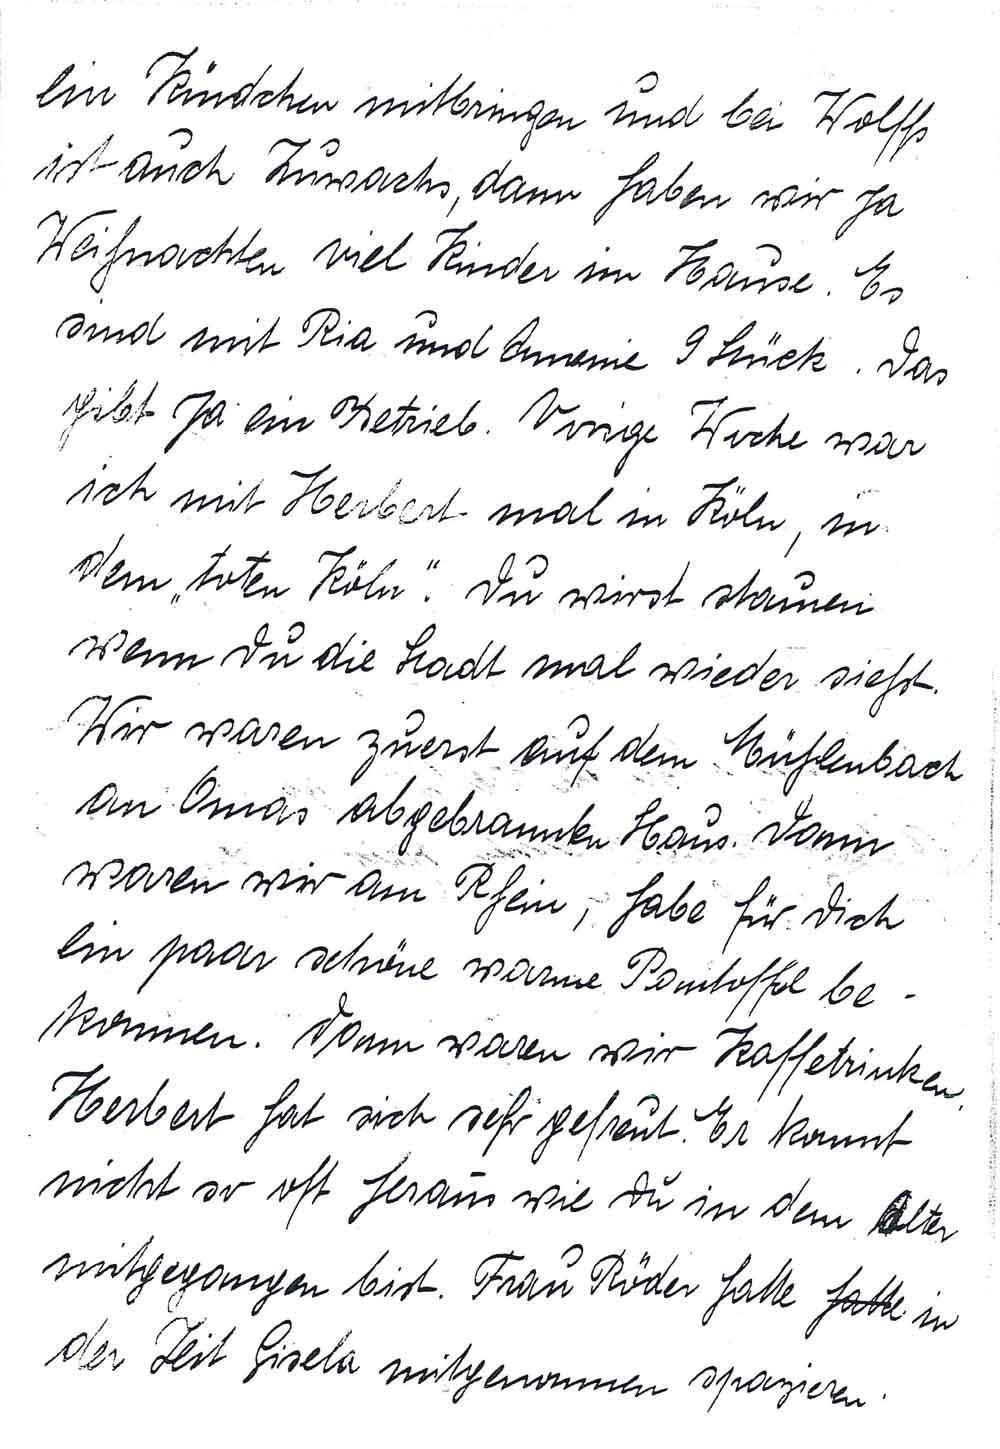 ein Kindchen mitbringen und bei Wolffs
ist auch Zuwachs, dann haben wir ja
Weihnachten viel Kinder im Hause. Es
sind mit Ria und Annemie 9 Stück. Das
gibt ja ein Betrieb. Vorige Woche war
ich mit Herbert mal in Köln, in
dem „toten Köln". Du wirst staunen
wenn Du die Stadt mal wieder siehst.
Wir waren zuerst auf dem Mühlenbach
an Omas abgebrannten Haus. Dann
waren wir am Rhein, habe für Dich
ein paar schöne warme Pantoffel be-
kommen. Dann waren wir Kaffetrinken.
Herbert hat sich sehr gefreut. Er kommt
nicht so oft heraus wie Du in dem Alter
mitgegangen bist. Frau Röder hatte hatte in
der Zeit Gisela mitgenommen spazieren.